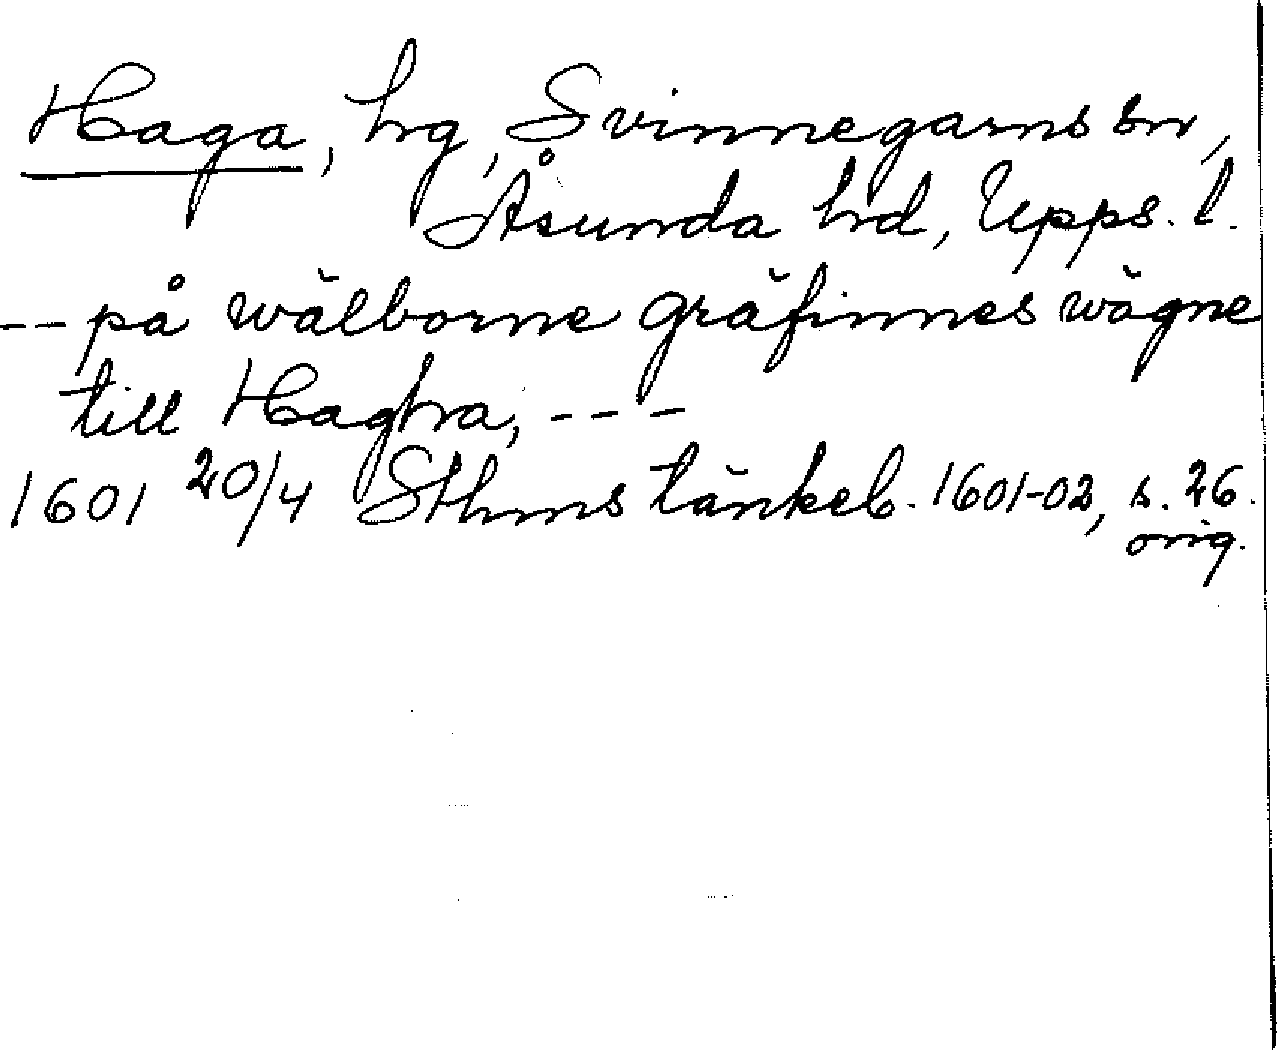 Haga, hg, Svinnegarns sn,
Åsunda hd, Upps. l.
-- på wälborne gräfinnes wägne
till Haghra, ---
1601 20/4 Sthms tänkeb. 1601-02, s. 26.
orig.